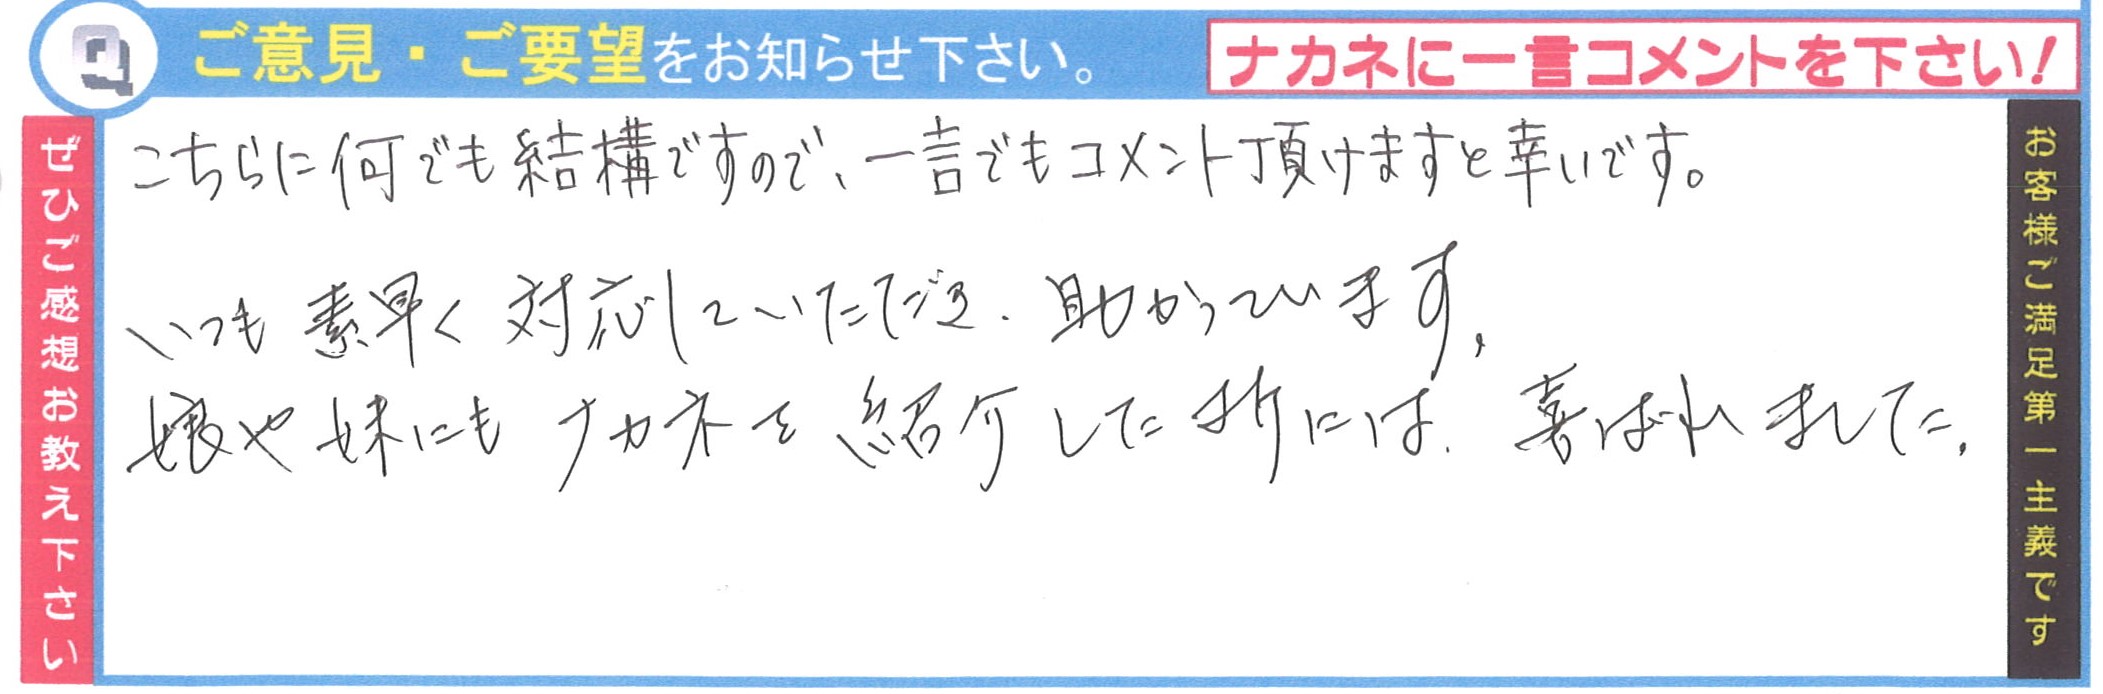 Q ご意見・ご要望をお知らせ下さい。
ナカネに一言コメントを下さい!
ぜひご感想お教え下さい
こちらに何でも結構ですので、一言でもコメント頂けますと幸いです。
いつも素早く対応していただき、助かっています。
娘や妹にもナカネを紹介した折には、喜ばれました。
お客様ご満足第一主義です